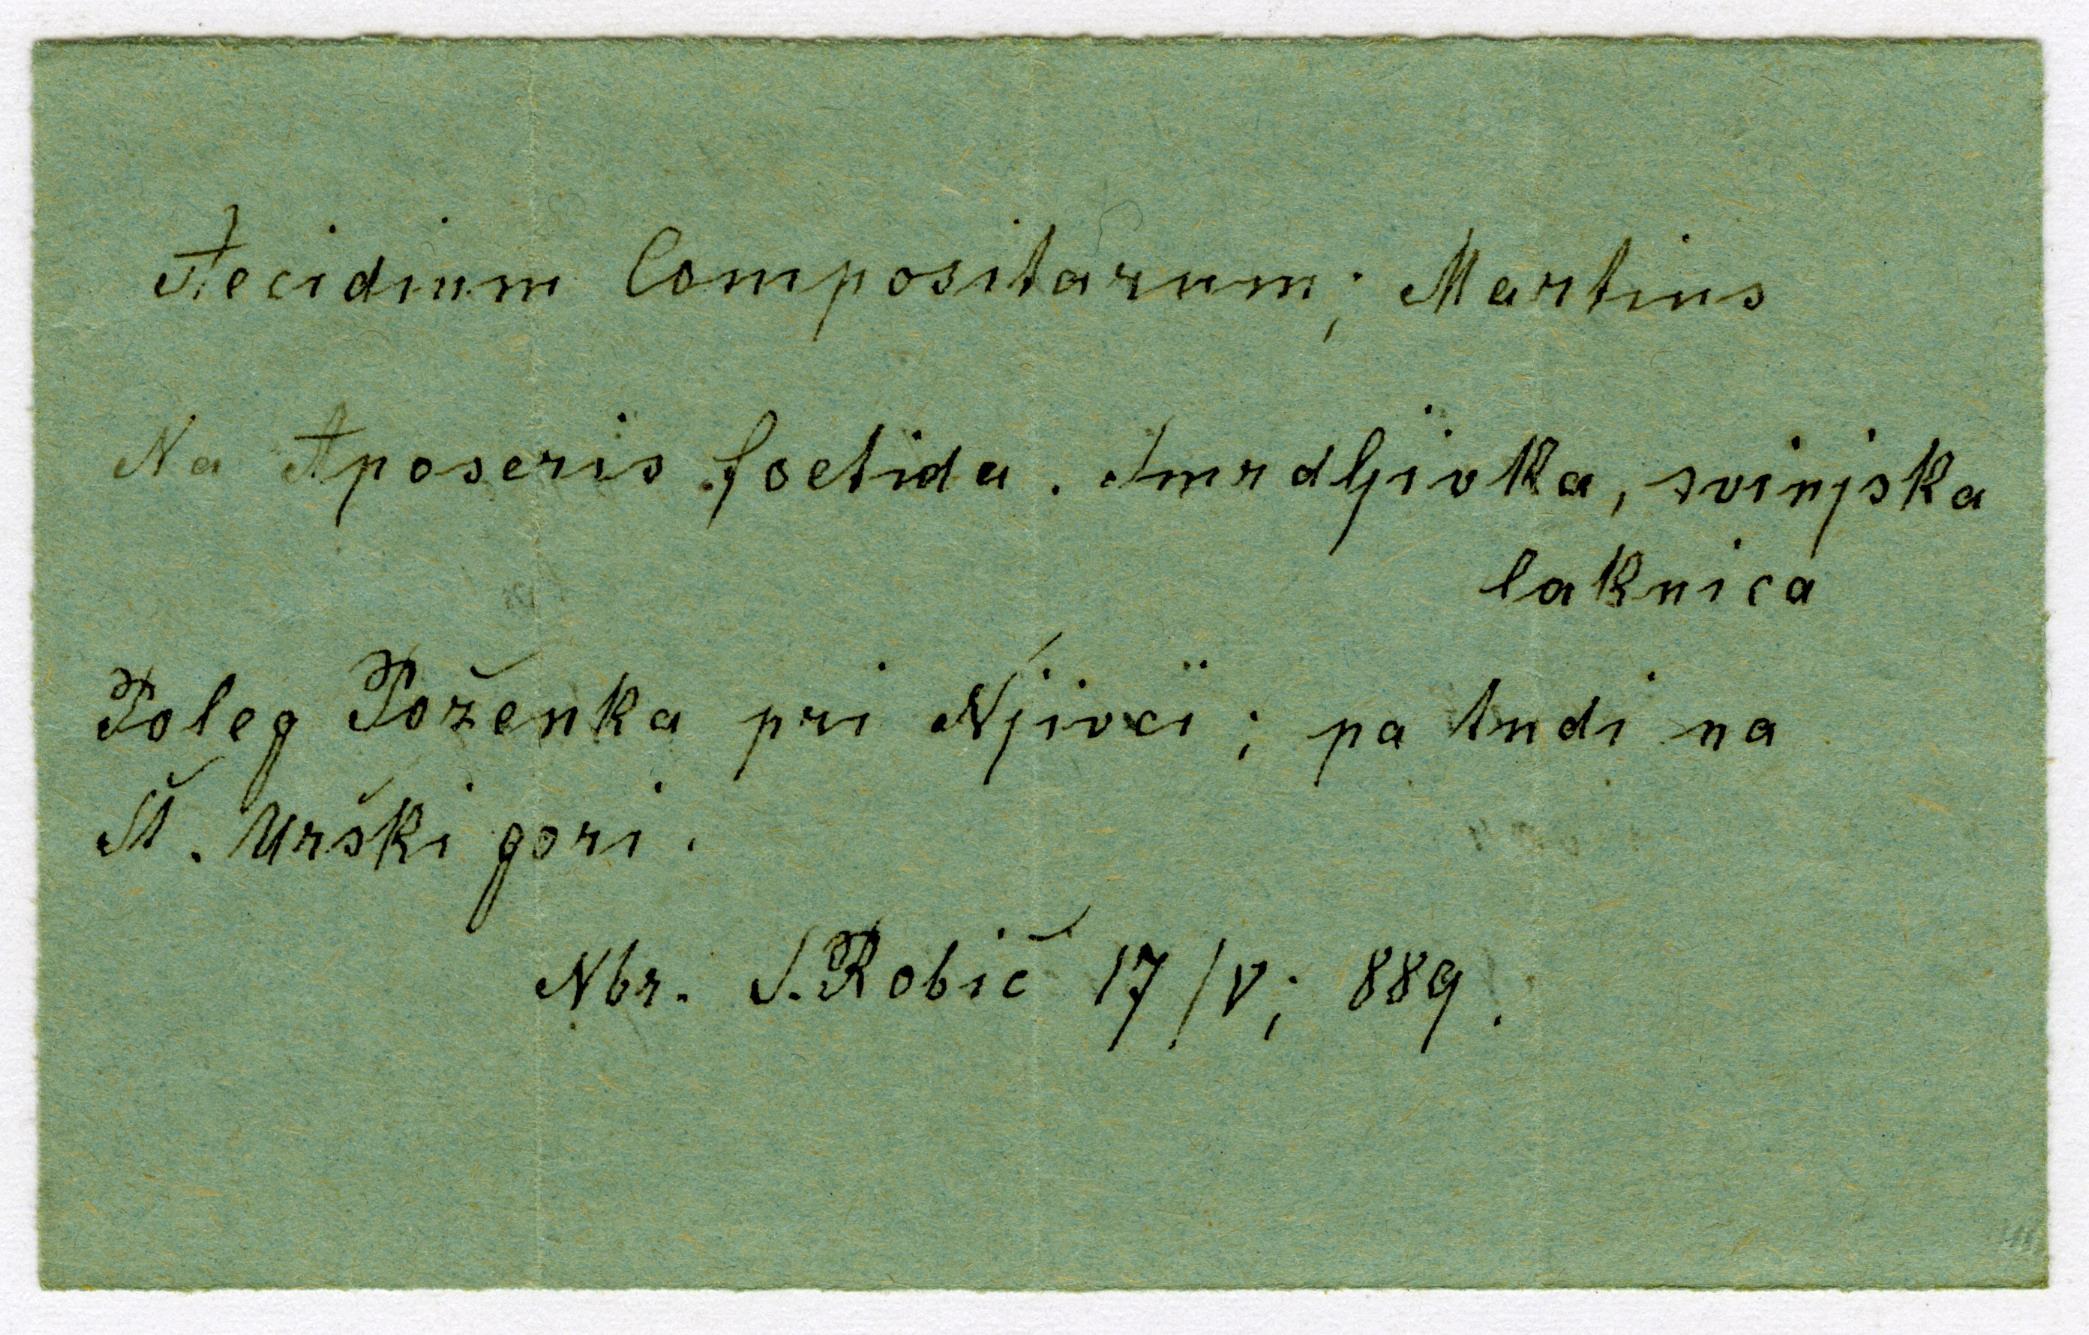 Aecidium Compositarum; Martius
Na Aposeris foetida. Smrdljivka, svinjska
laknica
Poleg Poženka pri Njivci; pa tudi na
Št. Urški gori.
Nbr. S. Robič 17/V; 889.